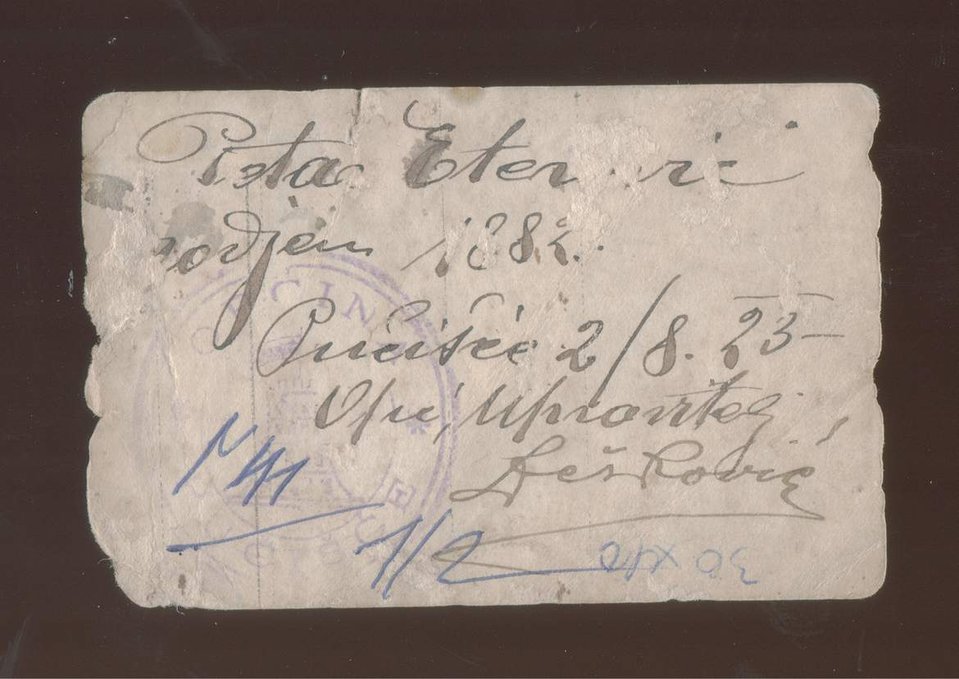 Petar Eterović
rodjen 1882.
Pučišće 2/8. 23
Opć. Upravitelj
Dešković
N 41
1/2
30 x 40